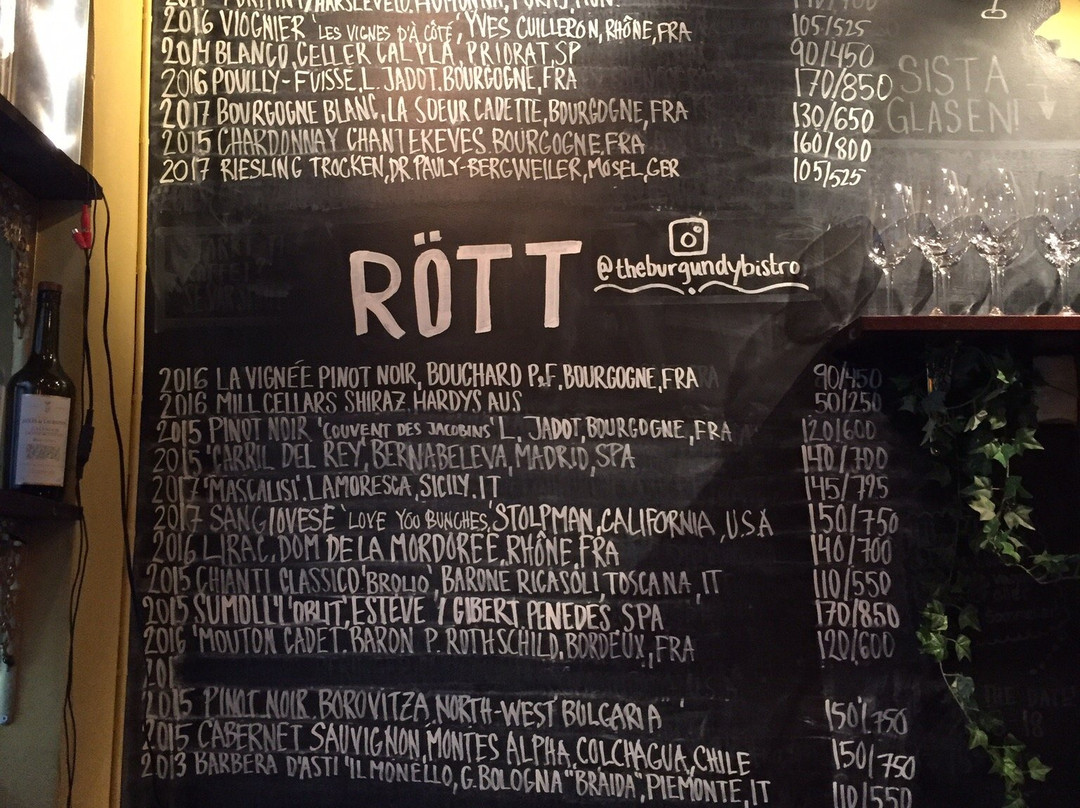 2016 VIOGNIER 'LES VIGNES D'À CÔTÉ', YVES CUILLERON, RHÔNE, FRA 105/525
2014 BLANCO, CELLER CAL PLA, PRIORAT, SP 90/450
2016 POUILLY-FUISSE, L. JADOT. BOURGOGNE, FRA 170/850
2017 BOURGOGNE BLANC, LA SOEUR CADETTE, BOURGOGNE, FRA 130/650
2015 CHARDONNAY CHANTEKEVES. BOURGOGNE, FRA 160/800
2017 RIESLING TROCKEN, DR. PAULY-BERGWEILER, MOSEL, GER 105/525
SISTA
GLASEN!
RÖTT
@theburgundybistro
2016 LA VIGNÉE PINOT NOIR, BOUCHARD P&F, BOURGOGNE, FRA 90/450
2016 MILL CELLARS SHIRAZ, HARDYS AUS 50/250
2015 PINOT NOIR 'COUVENT DES JACOBINS' L. JADOT, BOURGOGNE, FRA 120/600
2015 'CARRIL DEL REY', BERNABELEVA, MADRID, SPA 140/700
2017 'MASCALISI'. LAMORESCA, SICILY. IT 145/725
2017 SANGIOVESE 'LOVE YOU BUNCHES,' STOLPMAN, CALIFORNIA, U.S.A 150/750
2016 LIRAC, DOM DE LA MORDOREE, RHÔNE, FRA 140/700
2015 CHIANTI CLASSICO 'BROLIO', BARONE RICASOLI, TOSCANA, IT 110/550
2015 SUMOLL 'L'OBLIT', ESTEVE / GIBERT, PENEDÉS, SPA 170/850
2016 'MOUTON CADET. BARON P. ROTHSCHILD, BORDEUX, FRA 120/600
201
2015 PINOT NOIR, BOROVITZA, NORTH-WEST BULGARIA 150/750
2015 CABERNET SAUVIGNON, MONTES ALPHA, COLCHAGUA, CHILE 150/750
2013 BARBERA D'ASTI 'IL MONELLO, G. BOLOGNA "BRAIDA", PIEMONTE, IT 110/550